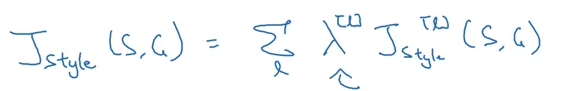 J_style (S,G) = Σ_l λ^[l] J_style^[l] (S,G)